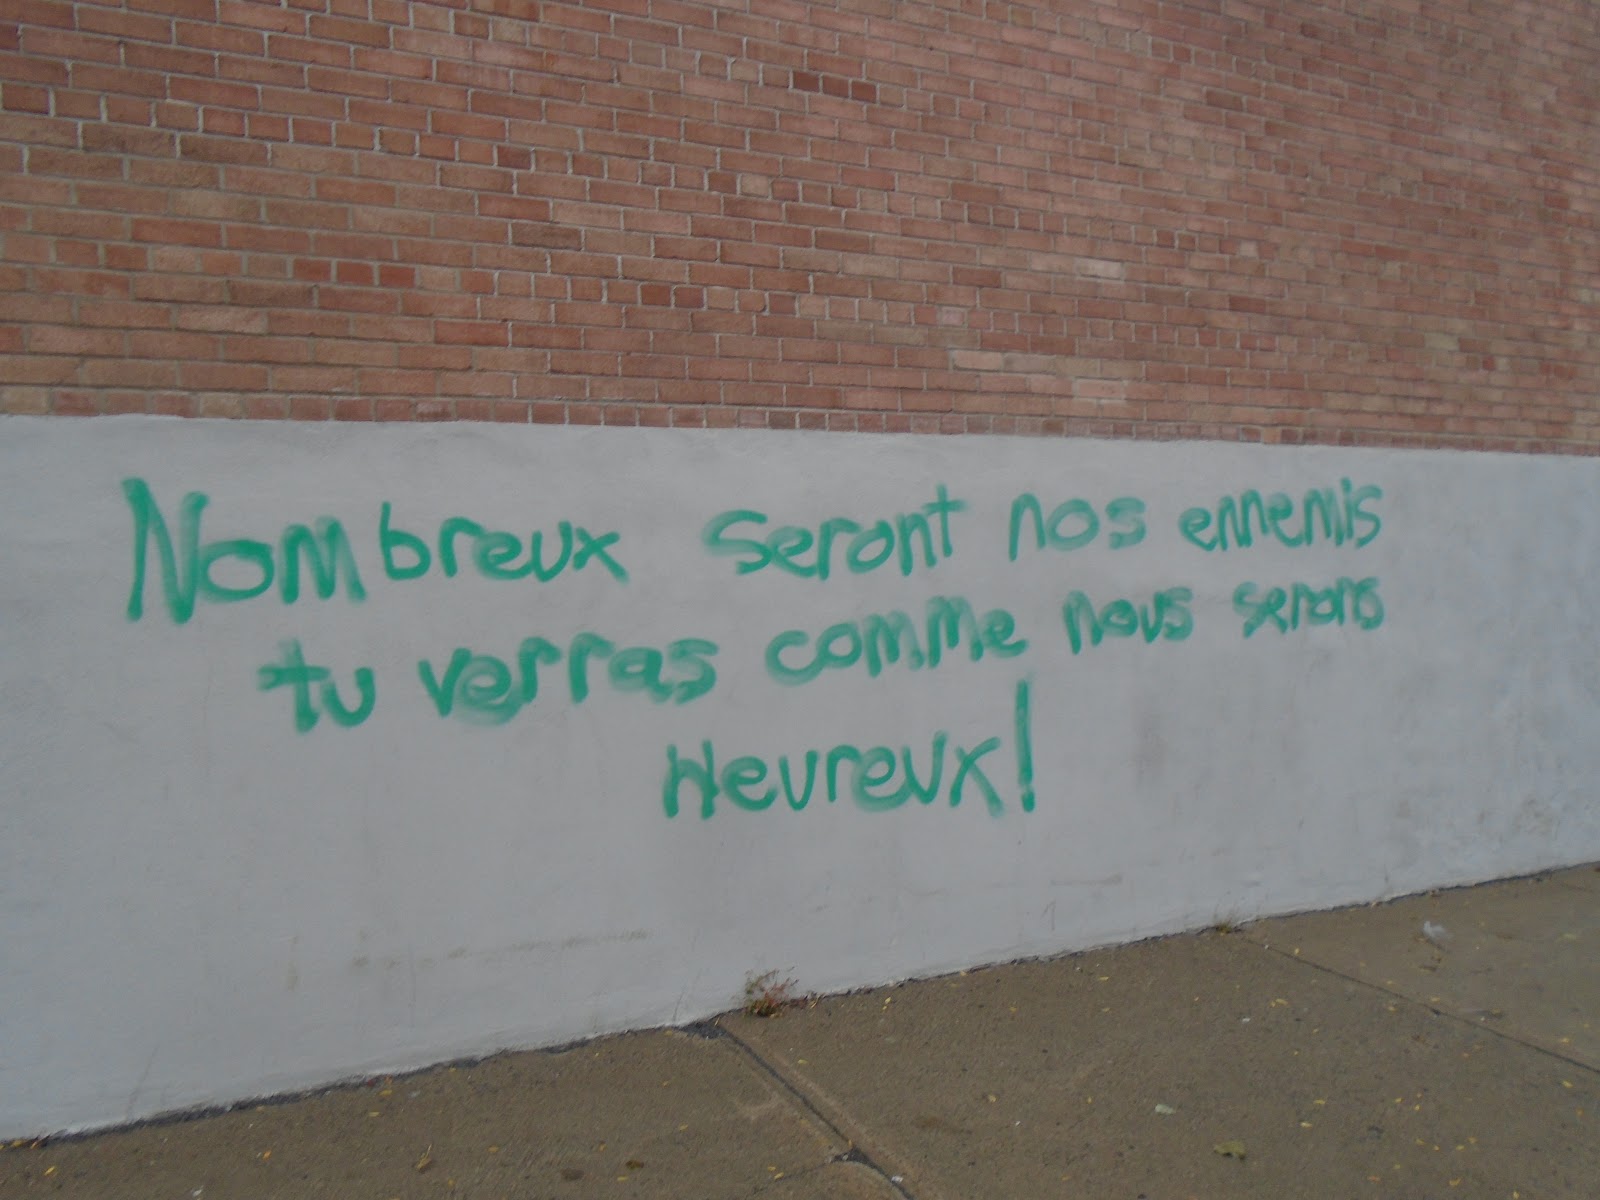 Nombreux seront nos ennemis
tu verras comme nous serons
Heureux!